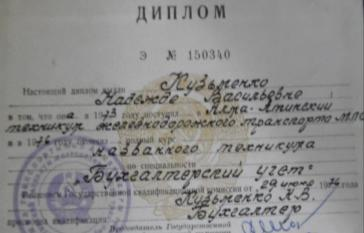 ДИПЛОМ
Э № 150340
Настоящий диплом выдан Кузьменко
Надежде Васильевне
в том, что он а в 1973 поступил а в Алма-Атинский
техникум железнодорожного транспорта МПС
и в 1976 полный курс
названного техникума
по специальности
"Бухгалтерский учет"
Решением Государственной квалификационной комиссии от 29 июня 1976
Кузьменко Н.В.
присвоена квалификация Бухгалтер
Председатель Государственной